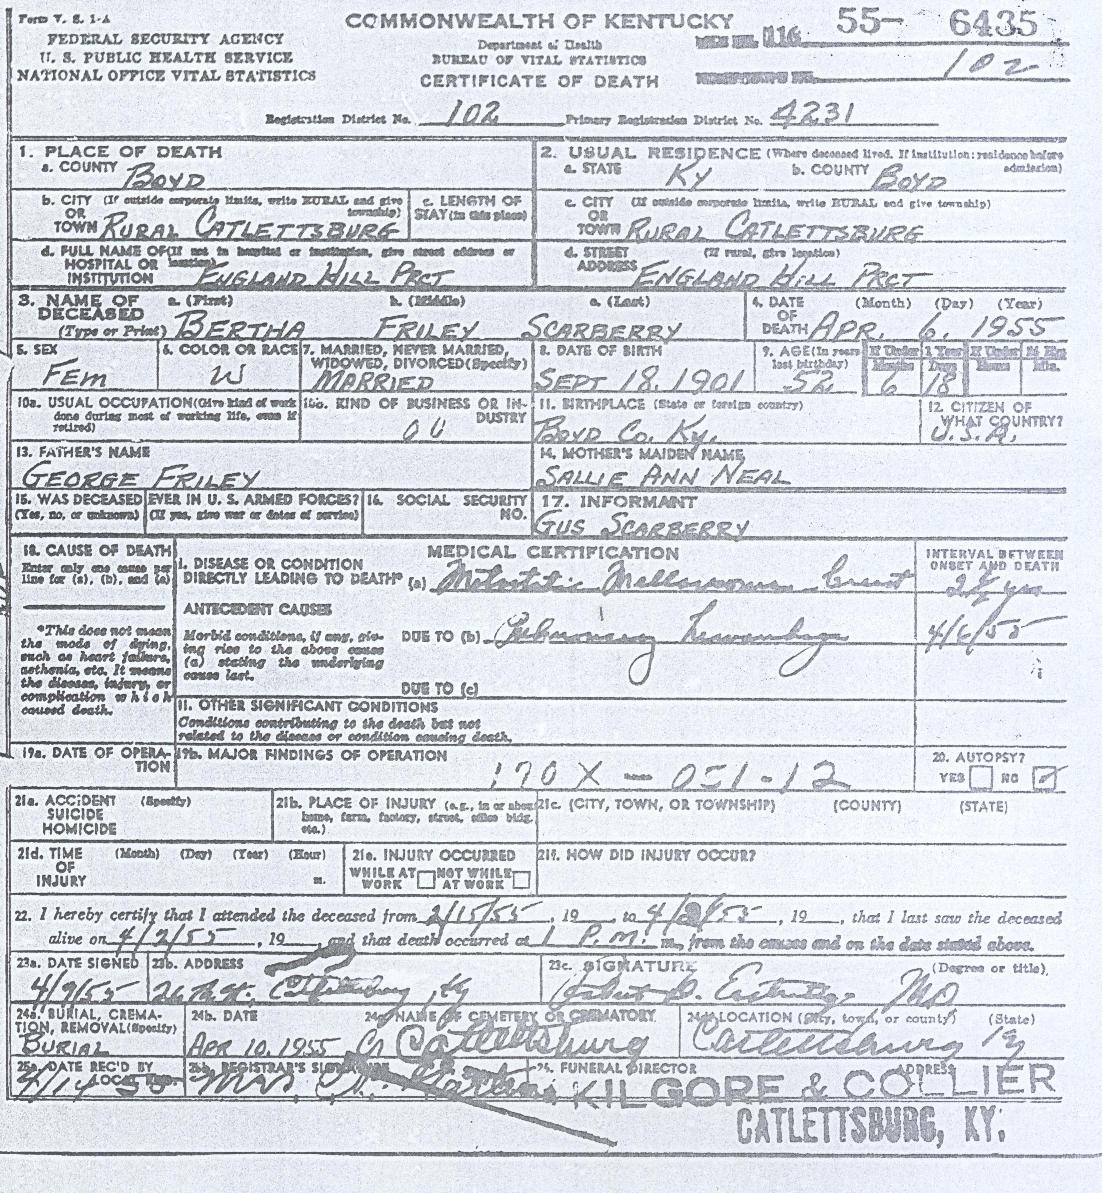 Form V. S. 1-A
FEDERAL SECURITY AGENCY
U. S. PUBLIC HEALTH SERVICE
NATIONAL OFFICE VITAL STATISTICS
COMMONWEALTH OF KENTUCKY
Department of Health
BUREAU OF VITAL STATISTICS
CERTIFICATE OF DEATH
116 55- 6435
102
Registration District No. 102 Primary Registration District No. 4231
1. PLACE OF DEATH
a. COUNTY BOYD
b. CITY (If outside corporate limits, write RURAL and give township)
OR
TOWN RURAL CATLETTSBURG
c. LENGTH OF STAY (in this place)
d. FULL NAME OF (If not in hospital or institution, give street address or location)
HOSPITAL OR
INSTITUTION ENGLAND HILL PRCT
2. USUAL RESIDENCE (Where deceased lived. If institution: residence before admission)
a. STATE KY b. COUNTY BOYD
c. CITY (If outside corporate limits, write RURAL and give township)
OR
TOWN RURAL CATLETTSBURG
d. STREET (If rural, give location)
ADDRESS ENGLAND HILL PRCT
3. NAME OF DECEASED (Type or Print) a. (First) b. (Middle) c. (Last)
BERTHA FRILEY SCARBERRY
4. DATE OF DEATH (Month) (Day) (Year)
APR. 6, 1955
5. SEX
FEM
6. COLOR OR RACE
W
7. MARRIED, NEVER MARRIED, WIDOWED, DIVORCED (Specify)
MARRIED
8. DATE OF BIRTH
SEPT 18, 1901
9. AGE (In years last birthday)
If Under 1 Year
Months Days
6 18
If Under 24 Hrs
Hours Min.
10a. USUAL OCCUPATION (Give kind of work done during most of working life, even if retired)
10b. KIND OF BUSINESS OR INDUSTRY
11. BIRTHPLACE (State or foreign country)
BOYD CO. KY.
12. CITIZEN OF WHAT COUNTRY?
U.S.A.
13. FATHER'S NAME
GEORGE FRILEY
14. MOTHER'S MAIDEN NAME
SALLIE ANN NEAL
15. WAS DECEASED EVER IN U. S. ARMED FORCES?
(Yes, no, or unknown) (If yes, give war or dates of service)
16. SOCIAL SECURITY NO.
17. INFORMANT
GUS SCARBERRY
18. CAUSE OF DEATH
Enter only one cause per line for (a), (b), and (c)
*This does not mean the mode of dying, such as heart failure, asthenia, etc. It means the disease, injury, or complication which caused death.
MEDICAL CERTIFICATION
INTERVAL BETWEEN ONSET AND DEATH
I. DISEASE OR CONDITION
DIRECTLY LEADING TO DEATH* (a)
yrs
ANTECEDENT CAUSES
Morbid conditions, if any, giving rise to the above cause (a) stating the underlying cause last.
DUE TO (b) Pulmonary
4/6/55
DUE TO (c)
II. OTHER SIGNIFICANT CONDITIONS
Conditions contributing to the death but not related to the disease or condition causing death.
19a. DATE OF OPERATION
19b. MAJOR FINDINGS OF OPERATION
170 X - 051-12
20. AUTOPSY?
YES NO
21a. ACCIDENT (Specify)
SUICIDE
HOMICIDE
21b. PLACE OF INJURY (e.g., in or about home, farm, factory, street, office bldg. etc.)
21c. (CITY, TOWN, OR TOWNSHIP) (COUNTY) (STATE)
21d. TIME OF INJURY (Month) (Day) (Year) (Hour)
m.
21e. INJURY OCCURRED
WHILE AT WORK NOT WHILE AT WORK
21f. HOW DID INJURY OCCUR?
22. I hereby certify that I attended the deceased from 2/15/55, 19 to 4/2/55, 19, that I last saw the deceased
alive on 4/2/55, 19, and that death occurred at 1 P.M. m., from the causes and on the date stated above.
23a. DATE SIGNED
4/9/55
23b. ADDRESS
26th St. Catlettsburg, Ky
23c. SIGNATURE (Degree or title)
MD
24a. BURIAL, CREMATION, REMOVAL (Specify)
BURIAL
24b. DATE
APR 10, 1955
24c. NAME OF CEMETERY OR CREMATORY
Catlettsburg
24d. LOCATION (City, town, or county) (State)
Catlettsburg Ky
25a. DATE REC'D BY LOCAL REG.
25b. REGISTRAR'S SIGNATURE
25. FUNERAL DIRECTOR ADDRESS
KILGORE & COLLIER
CATLETTSBURG, KY.